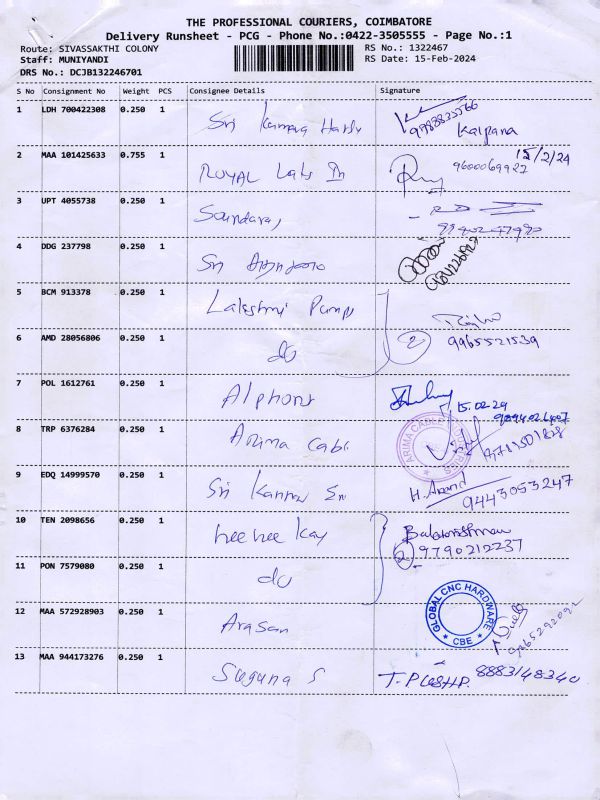 THE PROFESSIONAL COURIERS, COIMBATORE
Delivery Runsheet - PCG - Phone No.:0422-3505555 - Page No.:1
Route: SIVASSAKTHI COLONY RS No.: 1322467
Staff: MUNIYANDI RS Date: 15-Feb-2024
DRS No.: DCJB132246701
S No Consignment No Weight PCS Consignee Details Signature
1 LDH 700422308 0.250 1 Sri
Kalpana
2 MAA 101425633 0.755 1 ROYAL Labs 9600069927 15/2/24
3 UPT 4055738 0.250 1
4 DDG 237798 0.250 1 Sri
5 BCM 913378 0.250 1 Lakshmi Pump
6 AMD 28056806 0.250 1 do 2 9965521539
7 POL 1612761 0.250 1 Alphons 15.02.24
8 TRP 6376284 0.250 1 Arima Cabl
9 EDQ 14999570 0.250 1 Sri Kannan H. Anand 9443053247
10 TEN 2098656 0.250 1 hee hee kay
2 9790212237
11 PON 7579080 0.250 1 do
12 MAA 572928903 0.250 1 Arasan GLOBAL CNC HARDWARE CBE
13 MAA 944173276 0.250 1 Suguna S 8883148340